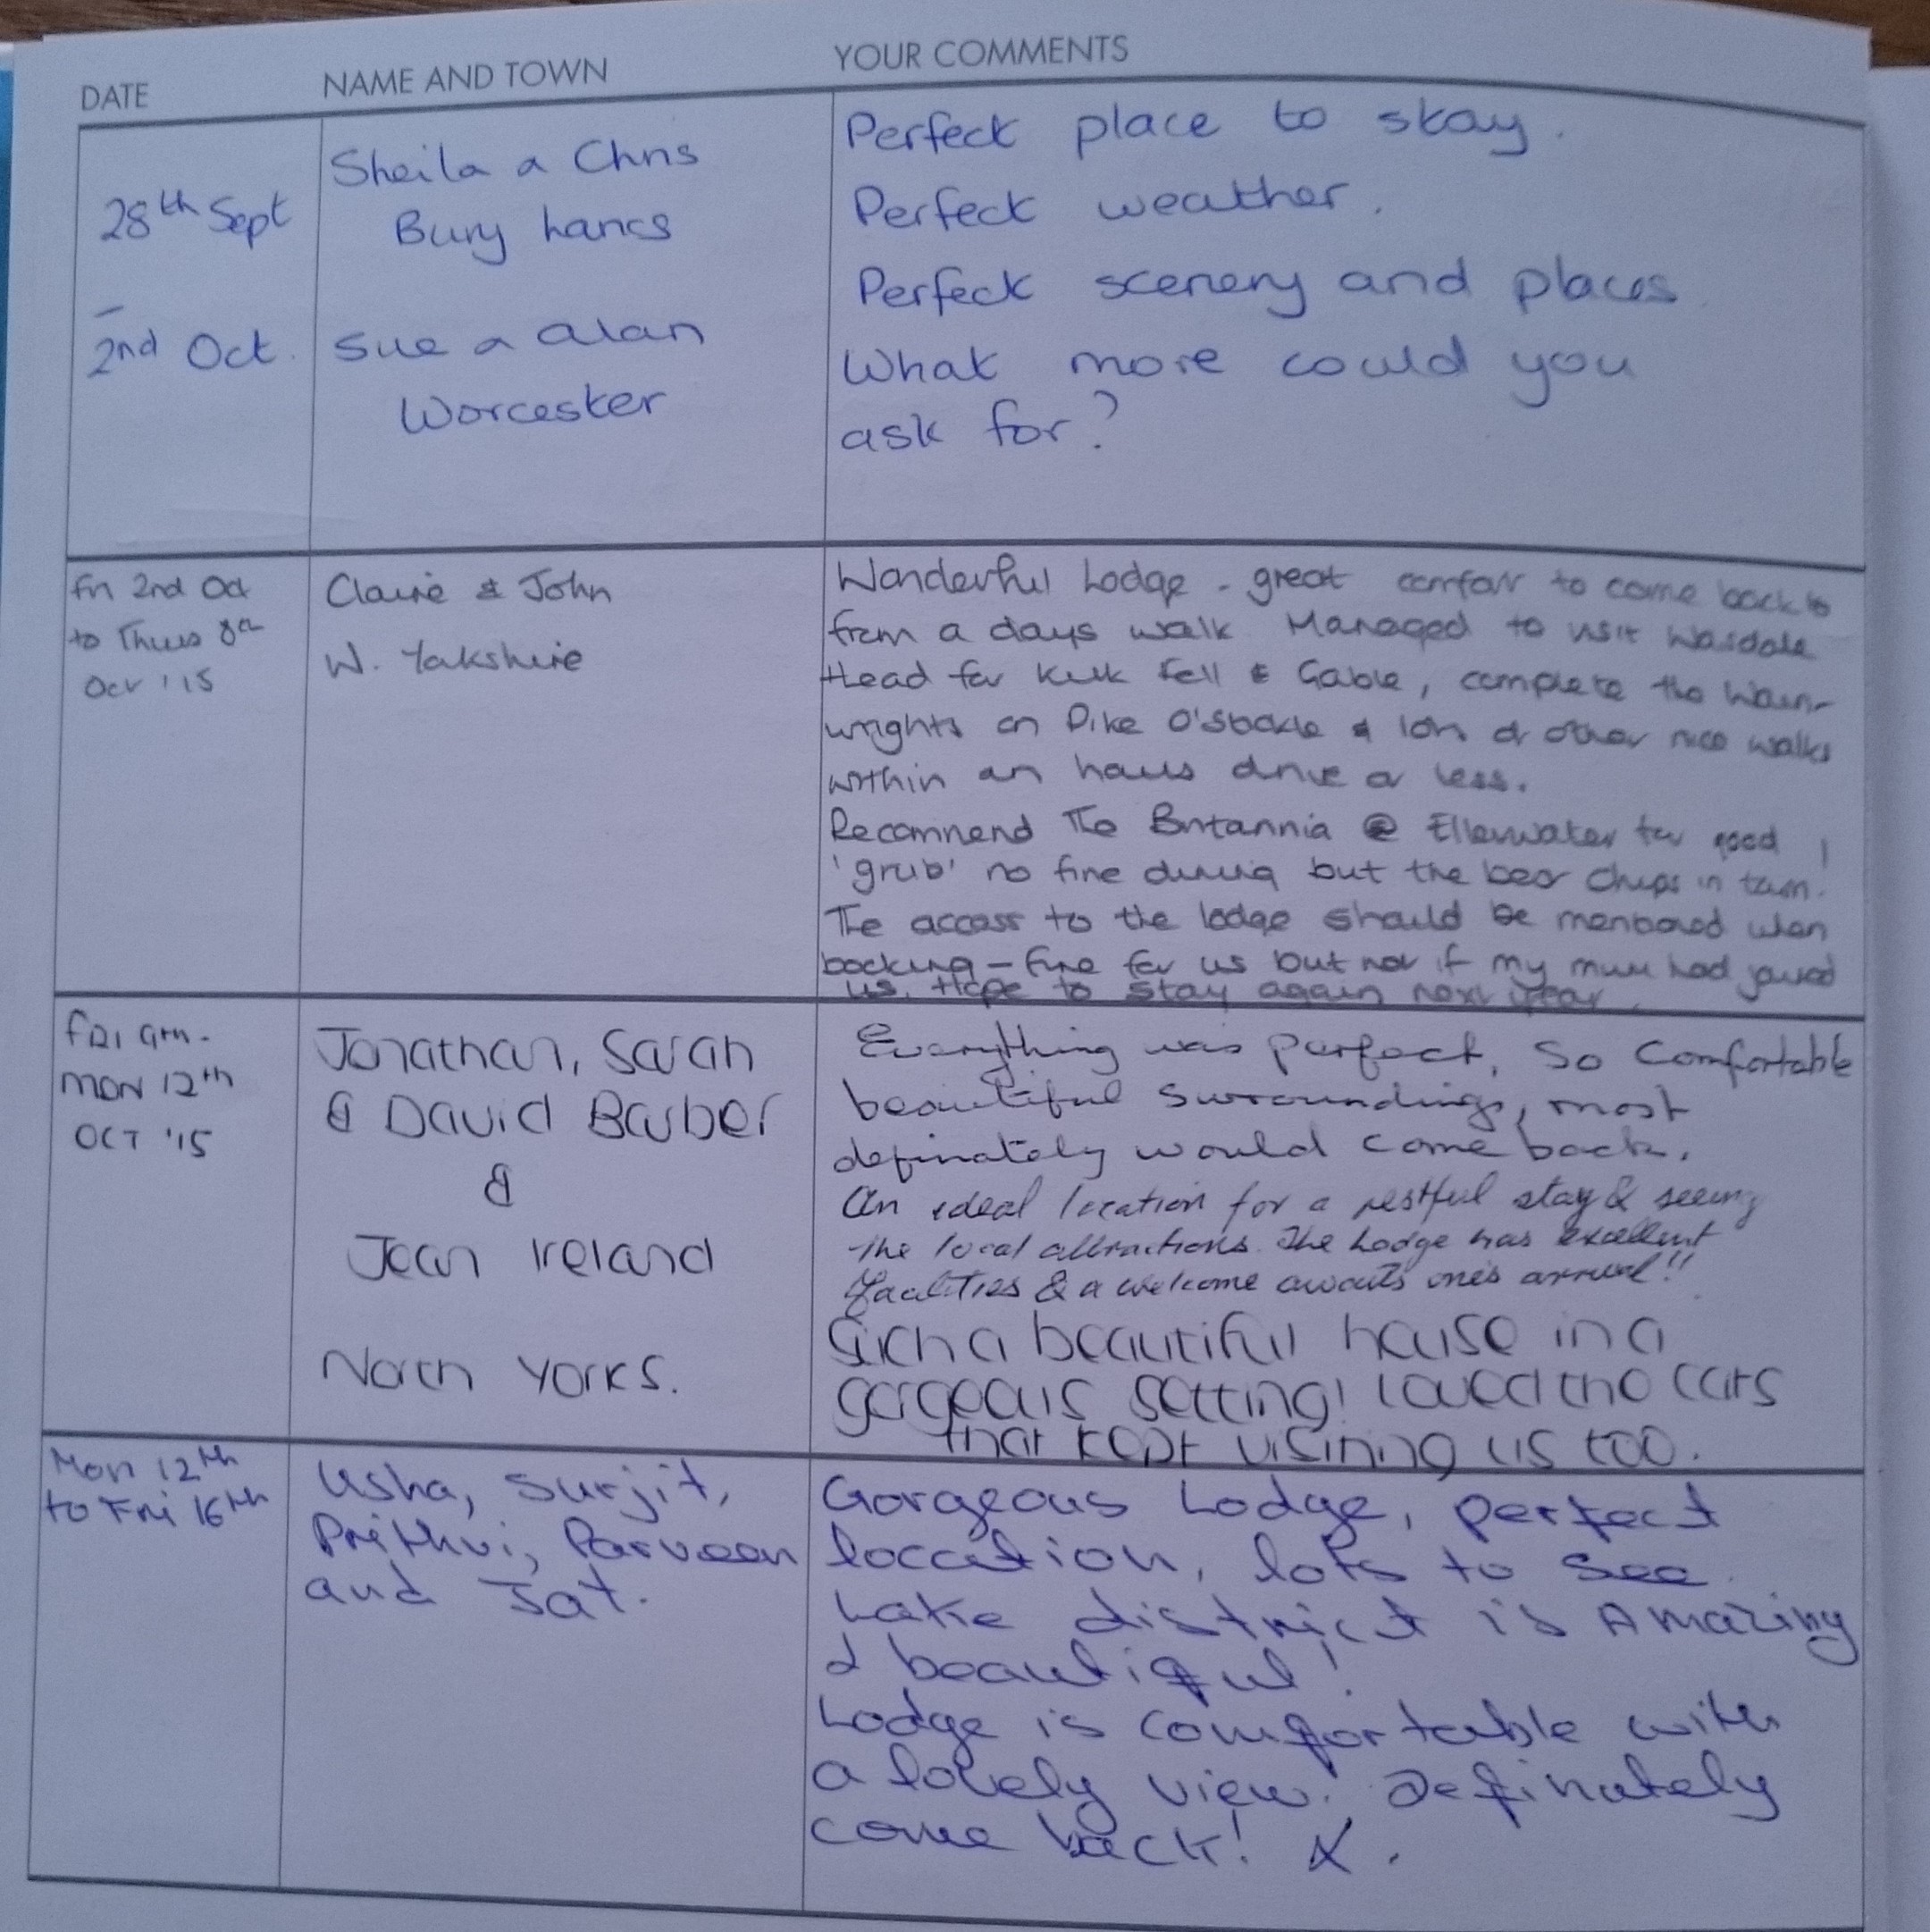 DATE
NAME AND TOWN
YOUR COMMENTS
28th Sept
-
2nd Oct.
Sheila & Chris
Bury Lancs
Sue & Alan
Worcester
Perfect place to stay.
Perfect weather.
Perfect scenery and places.
What more could you
ask for?
Fri 2nd Oct
to Thurs 8th
Oct '15
Claire & John
W. Yorkshire
Wonderful Lodge - great comfort to come back to
from a days walk. Managed to visit Wasdale
Head for Kirk Fell & Gable, complete the Wain-
wrights on Pike O'Stickle & lots of other nice walks
within an hours drive or less.
Recommend The Britannia @ Elterwater for good
'grub' no fine dining but the best chips in town.
The access to the lodge should be mentioned when
booking - fine for us but not if my mum had joined
us. Hope to stay again next year.
FRI 9TH -
MON 12TH
OCT '15
Jonathan, Sarah
& David Barber
&
Jean Ireland
North Yorks.
Everything was perfect, so comfortable
beautiful surroundings, most
definately would come back.
An ideal location for a restful stay & seeing
the local attractions. The Lodge has excellent
facilities & a welcome awaits one's arrival!!
Such a beautiful house in a
gorgeous setting! Loved the cats
that kept visiting us too.
Mon 12th
to Fri 16th
Usha, Surjit,
Prithvi, Parveen
and Jat.
Gorgeous Lodge, perfect
loccation, lots to see.
Lake district is Amazing
& beautiful!
Lodge is comfortable with
a lovely view. Definately
come back! X.